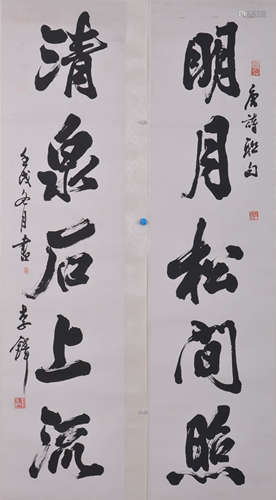 唐詩聯句
明月松间照
清泉石上流
壬戌冬月書
李鐸